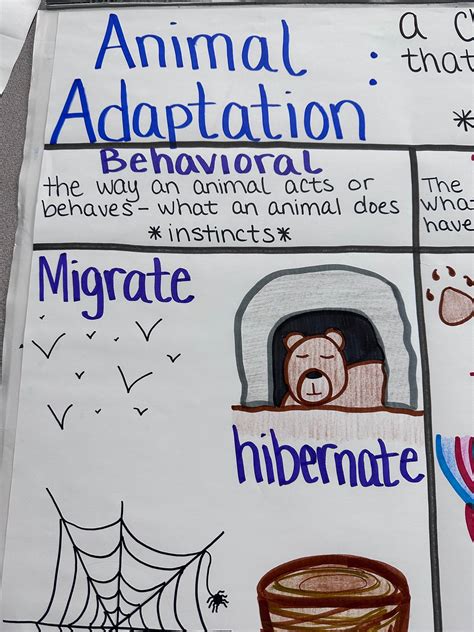 Animal
Adaptation :
a
that
*
Behavioral
the way an animal acts or
behaves - what an animal does
*instincts*
The
what
have
Migrate
hibernate